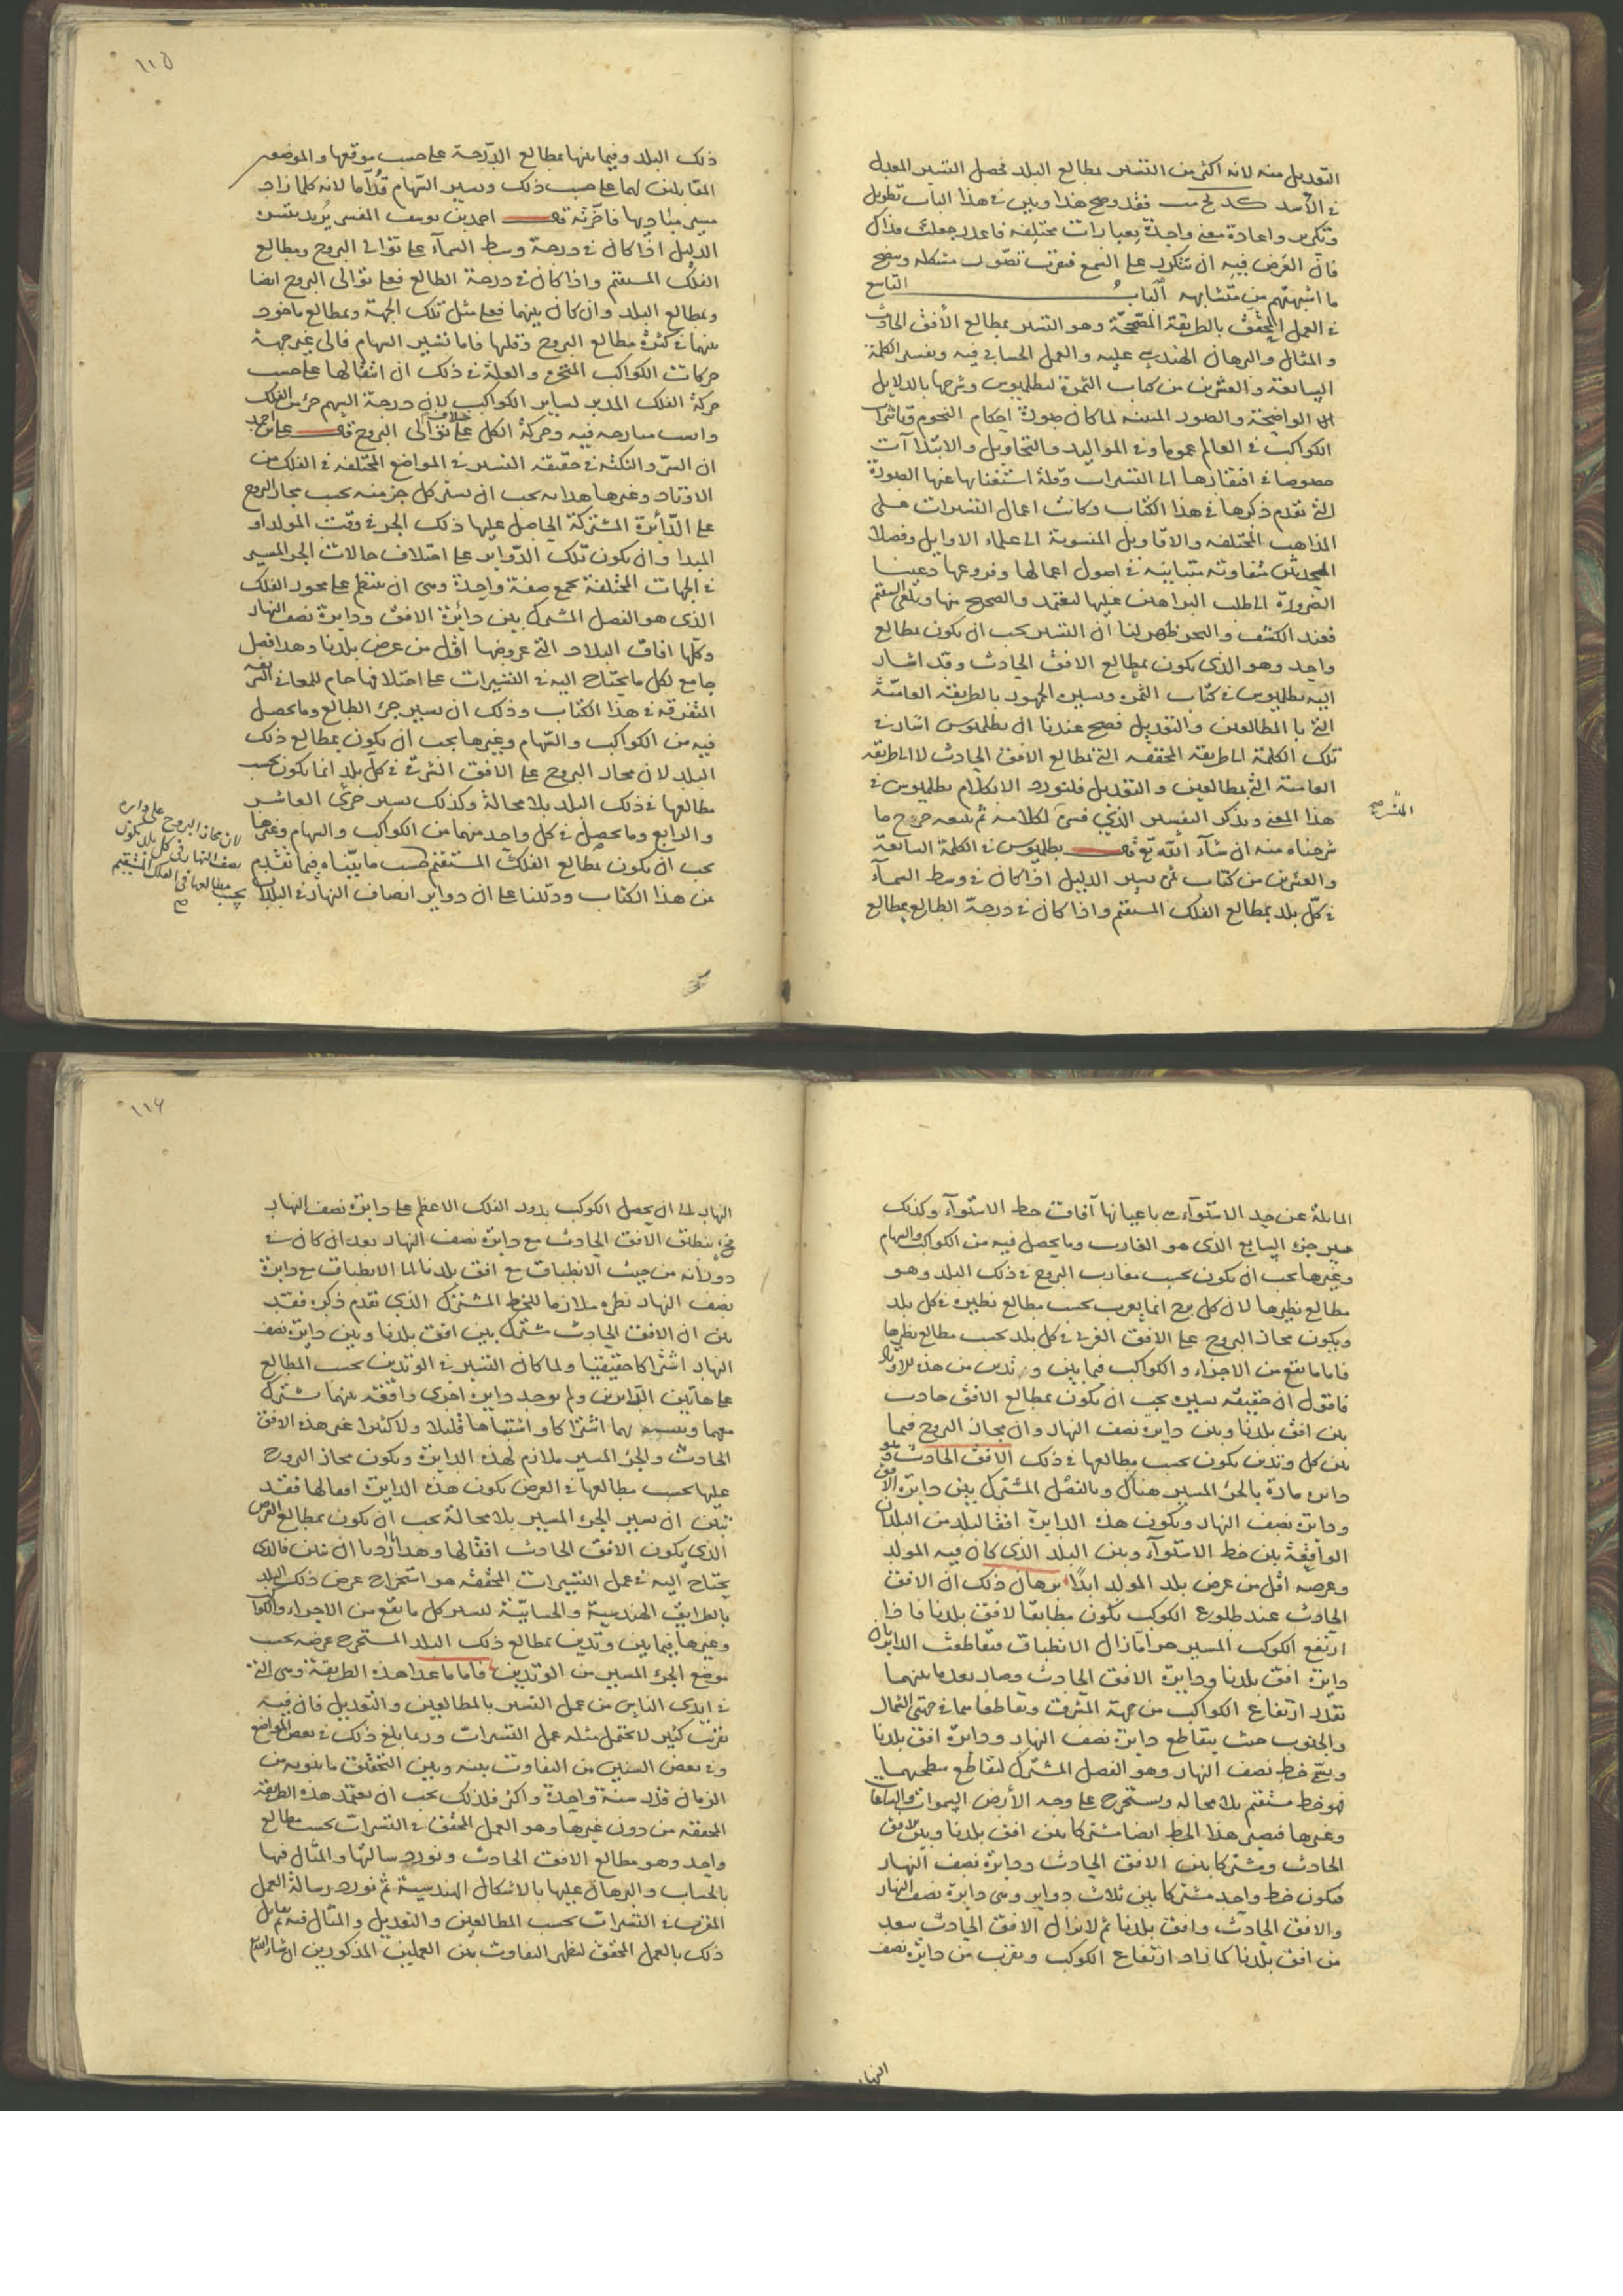 التعديل منه لانه اكثر من التسيير بمطالع البلد فحصل التسيير المعدل
في الأسد فقد وضح هذا وبين في هذا الباب تطويل
وتكرير واعادة معنى واحد بعبارات مختلفة
فان الغرض فيه ان يتكرر على السمع فيقرب تصور مشكله ويتضح
ما اشتبه من متشابهه الباب التاسع
في العمل المحقق بالطريقة المصححة وهو التسيير بمطالع الأفق الحادث
والمثال والبرهان الهندسي عليه والعمل الحسابي فيه وتفسير الكلمة
السابعة والعشرين من كتاب الثمرة لبطلميوس وشرحها بالدلايل
الواضحة والصور المبينة لما كان صورة احكام النجوم وتاثيرات
الكواكب في العالم عموما وفي المواليد والتحاويل والابتدآآت
خصوصا في افتقارها الى التسييرات وقلة استغنايها عنها الصورة
التي تقدم ذكرها في هذا الكتاب وكانت اعمال التسييرات على
المذاهب المختلفة والاقاويل المنسوبة الى علماء الاوايل وفضلا
المحدثين متفاوتة متباينة في اصول اعمالها وفروعها دعتنا
الضرورة الى طلب البراهين عليها ليعتمد والصحيح منها ويلغى السقيم
فعند الكشف والبحث ظهر لنا ان التسيير يجب ان يكون بمطالع
واحد وهو الذي يكون بمطالع الافق الحادث وقد اشار
اليه بطلميوس في كتاب الثمرة وتسيير الجمهور بالطريقة العامية
التي بالمطالعين والتعديل فصح عندنا ان بطلميوس اشار في
تلك الكلمة الى طريقة المحققة التي بمطالع الافق الحادث لا الى طريقة
العامة التي بمطالعين والتعديل فلنورد الان كلام بطلميوس في
هذا المعنى ونذكر التفسير الذي فسر لكلامه ثم نتبعه
شرحناه منه ان شآء الله تع قال بطلميوس في الكلمة السابعة
والعشرين من كتاب ثمره تسيير الدليل اذا كان في وسط السمآء
في كل بلد بمطالع الفلك المستقيم واذا كان في درجة الطالع بمطالع
١١٥
ذلك البلد وفيما بينها بمطالع الدرجة على حسب موقعها والموضعين
المقابلين لهما على حسب ذلك وتسيير السهام قدآما لانه كلما زاد
احمد بن يوسف المفسر يريد بتسيير
الدليل اذا كان في درجة وسط السمآء على توالي البروج وبمطالع
الفلك المستقيم واذا كان في درجة الطالع فعلى توالي البروج ايضا
وبمطالع البلد وان كان بينهما فعلى مثل تلك الجهة وبمطالع ماخوذ
بينهما في كثرة مطالع البروج وقلتها فاما تسيير السهام فالى غير جهة
حركات الكواكب المتحيرة والعلة في ذلك ان انتقالها على حسب
حركة الفلك المدير لساير الكواكب لان درجة السهم جزء من الفلك
وليست فيه وحركة الكل على خلاف توالي البروج قال على بن احمد
ان السر والنكتة في حقيقة التسيير في المواضع المختلفة في الفلك من
الاوتاد وغيرها هذا انه يجب ان يسير كل جزء منه بحسب مجاز البروج
على الدآئرة المشتركة الحاصل عليها ذلك الجزء في وقت المولد او
المبدا وان يكون تلك الدواير على اختلاف حالات الجزء المسير
في الجهات المختلفة يجمع صفة واحدة وهي ان ينتظم على محور الفلك
الذي هو الفصل المشترك بين دآئرة الافق ودايرة نصف النهار
وكلها افاق البلاد التي عروضها اقل من عرض بلدنا وهذا فصل
جامع لكل ما يحتاج اليه في التسييرات على اختلافها للمعاني
المتفرقة في هذا الكتاب وذلك ان تسيير جزء الطالع وما يحصل
فيه من الكواكب والسهام وغيرها يجب ان يكون بمطالع ذلك
البلد لان مجاز البروج على الافق الشرقي في كل بلد انما يكون بحسب
مطالعها في ذلك البلد بلا محالة وكذلك تسيير جزئي العاشر
والرابع وما يحصل في كل واحد منهما من الكواكب والسهام وغيرها
يجب ان يكون بمطالع الفلك المستقيم حسب ما بيناه فيما تقدم
من هذا الكتاب ودللنا على ان دواير انصاف النهار في البلاد
لان مجاز البروج على دايرة
نصف النهار في كل بلد يكون
بحسب مطالعها في الفلك المستقيم
صح
المايلة عن خط الاستوآء هي باعيانها آفاق خط الاستوآء وكذلك
تسيير جزء السابع الذي هو الغارب وما يحصل فيه من الكواكب والسهام
وغيرها يجب ان يكون بحسب مغارب البروج في ذلك البلد وهو
مطالع نظيرها لان كل برج انما يغرب بحسب مطالع نظيره في كل بلد
ويكون مجاز البروج على الافق الغربي في كل بلد بحسب مطالع نظيرها
فاما ما يقع من الاجزاء والكواكب فيما بين وتدين من هذه الاوتاد
فاقول ان حقيقة تسييره يجب ان يكون بمطالع الافق حادث
بين افق بلدنا وبين دايرة نصف النهار وان مجاز البروج فيما
بين كل وتدين يكون بحسب مطالعها في ذلك الافق الحادث وهو
دايرة مارة بالجزء المسير هناك وبالفصل المشترك بين دايرة الافق
ودايرة نصف النهار ويكون هذه الدايرة افقا لبلد من البلدان
الواقعة بين خط الاستوآء وبين البلد الذي كان فيه المولد
وعرضه اقل من عرض بلد المولد ابدًا برهان ذلك ان الافق
الحادث عند طلوع الكوكب يكون مطابقا لافق بلدنا فاذا
ارتفع الكوكب المسير جزءا ما زال الانطباق فتقاطعت الدايرتان
دايرة افق بلدنا ودايرة الافق الحادث وصار بعد ما بينهما
بقدر ارتفاع الكواكب من جهة المشرق وتقاطعاهما في جهتي الشمال
والجنوب حيث يتقاطع دايرة نصف النهار ودايرة افق بلدنا
ويسمى خط نصف النهار وهو الفصل المشترك لتقاطع سطحيهما
فهو خط مستقيم بلا محالة ويستخرج على وجه الأرض
وغيرها فيصير هذا الخط ايضا مشتركا بين افق بلدنا وبين الافق
الحادث ومشتركا بين الافق الحادث ودايرة نصف النهار
فيكون خط واحد مشتركا بين ثلاث دواير وهي دايرة نصف النهار
والافق الحادث وافق بلدنا ثم لا يزال الافق الحادث يبعد
من افق بلدنا كلما زاد ارتفاع الكوكب ويقرب من دايرة نصف
النهار
١١٦
النهار الى ان يحصل الكوكب بدور الفلك الاعظم على دايرة نصف النهار
فحينئذ ينطبق الافق الحادث مع دايرة نصف النهار بعد ان كان في
دورانه من حيث الانطباق مع افق بلدنا الى الانطباق مع دايرة
نصف النهار ملازما للخط المشترك الذي تقدم ذكره فقد
بين ان الافق الحادث مشترك بين افق بلدنا وبين دايرة نصف
النهار اشتراكا حقيقيا ولما كان التسيير في الوتدين بحسب المطالع
على هاتين الدايرتين ولم يوجد دايرة اخرى واقعة بينهما يشترك
معهما لهما اشتراكا واشتباها قليلا ولا كثيرا غير هذه الافق
الحادث والجزء المسير ملازم لهذه الدايرة ويكون مجاز البروج
عليها بحسب مطالعها في العرض يكون هذه الدايرة افقا لها فقد
تبين ان تسيير الجزء المسير بلا محالة يجب ان يكون بمطالع العرض
الذي يكون الافق الحادث افقا لها وهذا ما اردنا ان نبين فالذي
يحتاج اليه في عمل التسييرات المحققة هو استخراج عرض ذلك البلد
بالطرايق الهندسية والحسابية لتسيير كل ما يقع من الاجزاء والكواكب
وغيرها فيما بين وتدين بمطالع ذلك البلد المستخرج عرضه بحسب
موضع الجزء المسير من الوتدين فاما ما عدا هذه الطريقة وهي التي
في ايدي الناس من عمل التسيير بالمطالعين والتعديل فان فيه
تقريب كثير لا يحتمل مثله عمل التسييرات وربما بلغ ذلك في بعض المواضع
وفي بعض السنين من التفاوت بينه وبين التحقيق ما ينوبه من
الزمان قدر سنة واحدة واكثر فلذلك يجب ان يعتمد هذه الطريقة
المحققة من دون غيرها وهو العمل المحقق في التسييرات بحسب مطالع
واحد وهو مطالع الافق الحادث ونورد رسالتها والمثال فيها
بالحساب والبرهان عليها بالاشكال الهندسية ثم نورد رسالة العمل
المقرب في التسييرات بحسب المطالعين والتعديل والمثال فيه ثم نقابل
ذلك بالعمل المحقق ليظهر التفاوت بين العملين المذكورين ان شاء الله